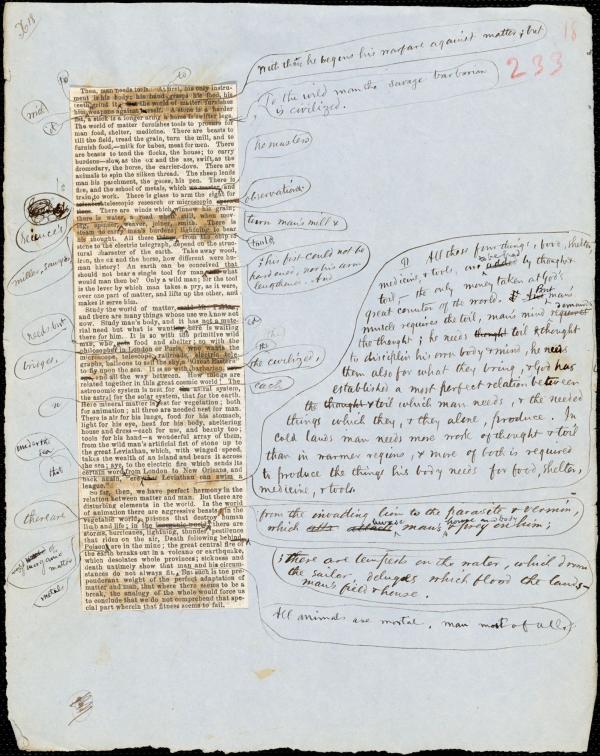 18
233
next thing he begins his warfare against matter; but
To the wild man the savage barbarian
is civilized.
he masters
observations
turn man's mill &
this best could not be
hardened, nor his arm
lengthened. And
the civilized,
each
to
to
science's
miller, sawyer
need but
bridges,
under the
sea
that
there are
inorganic
matter
metal
Then, man needs tools. At first, his only instru-
ment is his body; his hand grasps his food, his
teeth grind it, the world of matter furnishes
his weapons against itself. A stone is a harder
fist, a stick is a longer arm, a horse is swifter legs.
The world of matter furnishes tools to procure for
man food, shelter, medicine. There are beasts to
till the field, tread the grain, turn the mill, and to
furnish food,—milk for babes, meat for men. There
are beasts to tend the flocks, the house; to carry
burdens—slow, as the ox and the ass, swift, as the
dromedary, the horse, the carrier-dove. There are
animals to spin the silken thread. The sheep lends
man his parchment, the goose, his pen. There is
fire, and the school of metals, which and
train to work. There is glass to arm the eight for
telescopic research or microscopic
There are winds which winnow his grain;
there is water, a mill, when mov-
ing, spinner, weaver, joiner, smith. There is
steam to carry man's burdens; lightning to bear
his thought. All these from the ship of
stone to the electric telegraph, depend on the struc-
tural character of the earth. Take away wood,
iron, the ox and the horse, how different were hu-
man history! An earth can be conceived that
should not bear a single tool for man, what
would man then be? Only a wild man; for the tool
is the lever by which man takes a pry, as it were,
over one part of matter, and lifts up the other, and
makes it serve him.
Study the world of matter,
and there are many things whose use we know not
now. Study man's body, and it has not a mate-
rial need but what is here is waiting
there for him. It is so with the primitive wild
man, who food and shelter; so with the
philosopher in London or Paris, who wants the
microscope, telescope, railroads, electric tele-
graphs, balloons to sail the sky,
to fly upon the sea. It is so with barbarian
and all the way between. How things are
related together in this great cosmic world! The
astronomic system is nest for astral system,
the astral for the solar system, that for the earth.
Here mineral matter is nest for vegetation; both
for animation; all three are needed nest for man.
There is air for his lungs, food for his stomach,
light for his eye, heat for his body, sheltering
house and dress—each for use, and beauty too;
tools for his hand—a wonderful array of them,
from the wild man's artificial fist of stone up to
the great Leviathan, which, with winged speed,
takes the wealth of an island and bears it across
the sea; aye, to the electric fire which sends its
certain word from London to New Orleans, and
back again, Leviathan can swim a
league."
So far, then, we have perfect harmony in the
relation between matter and man. But there are
disturbing elements in the world. In the world
of animation there are aggressive beasts; in the
vegetable world, poisons that destroy human
limb and life; in the there are
storms, hurricanes, lightning, thunder, pestilence
that rides on the air, Death following behind.
Poisons are in the mine; the great central fire of
the earth breaks out in a volcano or earthquake,
which desolates whole provinces; sickness and
death untimely show that man and his circum-
stances do not always fit. But such is the pre-
ponderant weight of the perfect adaptation of
matter and man, that where there seems to be a
break, the analogy of the whole would force us
to conclude that we do not comprehend that spe-
cial part wherein that fitness seems to fail.
¶ All those four things, food, shelter,
medicine, & tools, are by thought &
toil,—the only money taken at God's
great counter of the world. But man's
muscle requires the toil, man's mind
the thought; he needs thought toil & thought
to disciplin his own body & mind, he needs
them also for what they bring, & God has
established a most perfect relation between
the thought & toil which man needs, & the needed
things which they, & they alone, produce. In
cold lands man needs more work of thought & toil
than in warmer regions, & more of both is required
to produce the things his body needs for food, shelter,
medicine, & tools.
from the invading lion to the parasite & vermin,
which man's & prey on him;
; there are tempests on the water, which drown
the sailor, deluges which flood the lands-
man's field & house.
All animals are mortal, man most of all.